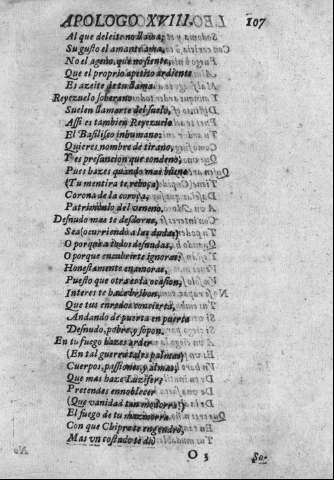 APOLOGO XVIII. 107
Al que deleite no llama;
Su gusto el amante ama,
No el ageno, que no siente,
Que el proprio apetito ardiente
Es azeite de tu llama.
Reyezuelo soberano
Suelen llamarte del suelo,
Assi es tambien Reyezuelo
El Basilisco inhumano:
Quieres nombre de tirano,
Y es presuncion que condeno,
Pues hazes quando mas bueno
(Tu mentira te reboça)
Corona de la coroça,
Patrimonio del veneno.
Desnudo mas te desdoras,
Sea (ocurriendo a las dudas)
O porque a todos desnudas,
O porque encubrirte ignoras:
Honestamente enamoras,
Puesto que otra es la ocasion,
Interes te haze bribon,
Que tus enredos concierta,
Andando de puerta en puerta
Desnudo, pobre, y sopon.
En tu fuego hazes arder
(En tal guerra las palmas)
Cuerpos, passiones, y almas;
Que mas haze Luzifer?
Pretendes ennoblecer
(Que vanidad tan modorra!)
El fuego de tu mazmorra
Con que Chipre te engendrò,
Mas un cosido te diò
O 3 So-